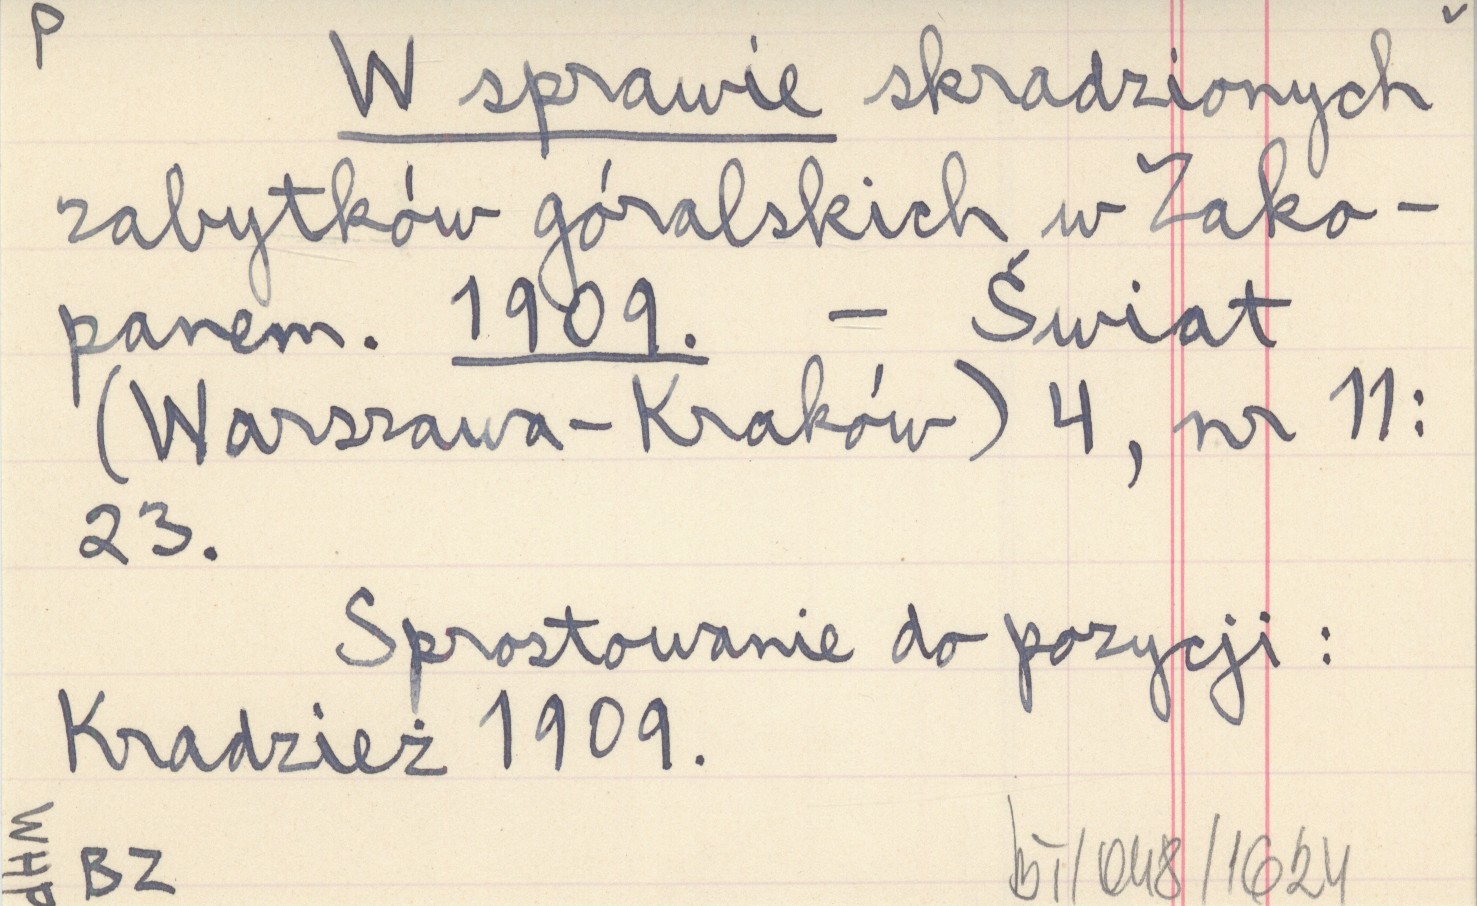 P ˇ
W sprawie skradzionych
zabytków góralskich w Zako-
panem. 1909. - Świat
(Warszawa-Kraków) 4, nr 11:
23.
Sprostowanie do pozycji:
Kradzież 1909.
WHP
BZ
bI/048/1624